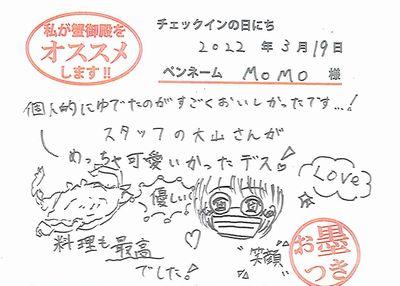 私が蟹御殿を
オススメ
します!!
チェックインの日にち
2022 年 3月 19日
ペンネーム MOMO 様
個人的にゆでたのがすごくおいしかったです…!
スタッフの大山さんが
めっちゃ可愛いかったデス
優しい
Love
料理も最高
でした。
"笑顔"
お墨
つき